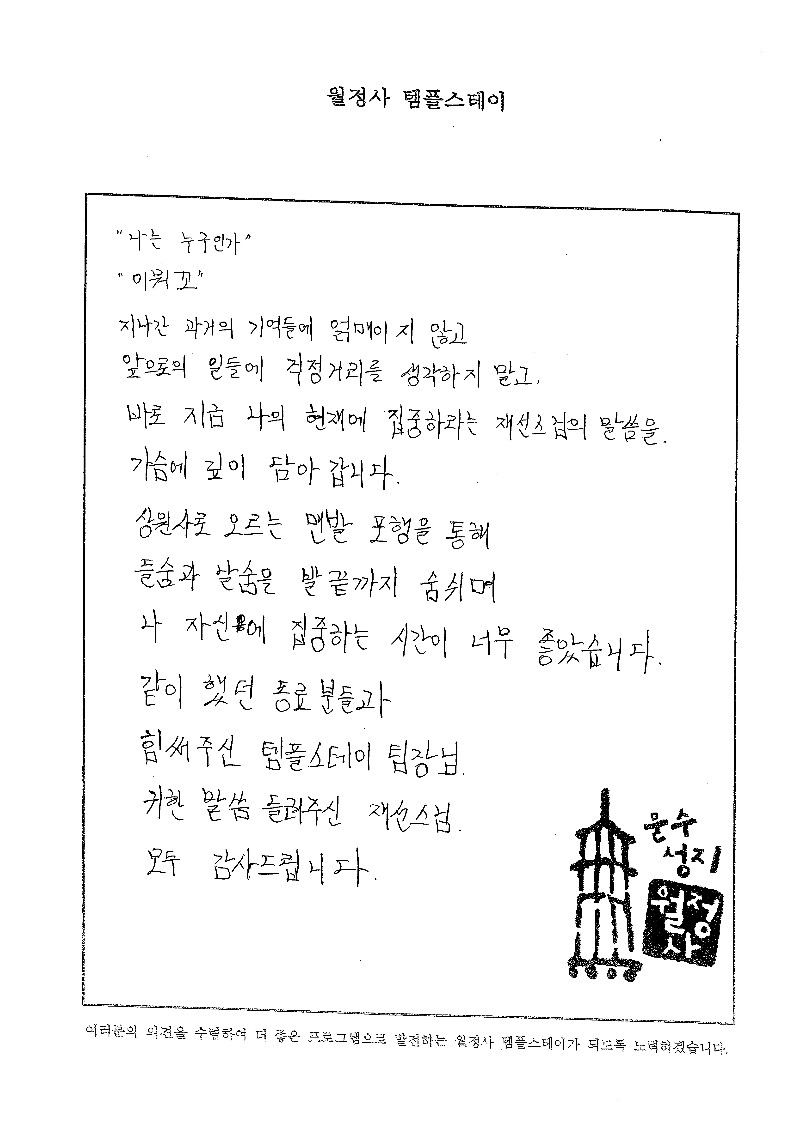 월정사 템플스테이
"나는 누구인가"
"이뭐꼬"
지나간 과거의 기억들에 얽매이지 않고
앞으로의 일들에 걱정거리를 생각하지 말고,
바로 지금 나의 현재에 집중하라는 재선스님의 말씀을.
가슴에 깊이 담아 갑니다.
상원사로 오르는 맨발 포행을 통해
들숨과 날숨을 발끝까지 숨쉬며
나 자신에 집중하는 시간이 너무 좋았습니다.
같이 했던 동료분들과
힘써주신 템플스테이 팀장님.
귀한 말씀 들려주신 재선스님.
모두 감사드립니다.
문수
성지
월정
사
여러분의 의견을 수렴하여 더 좋은 프로그램으로 발전하는 월정사 템플스테이가 되도록 노력하겠습니다.